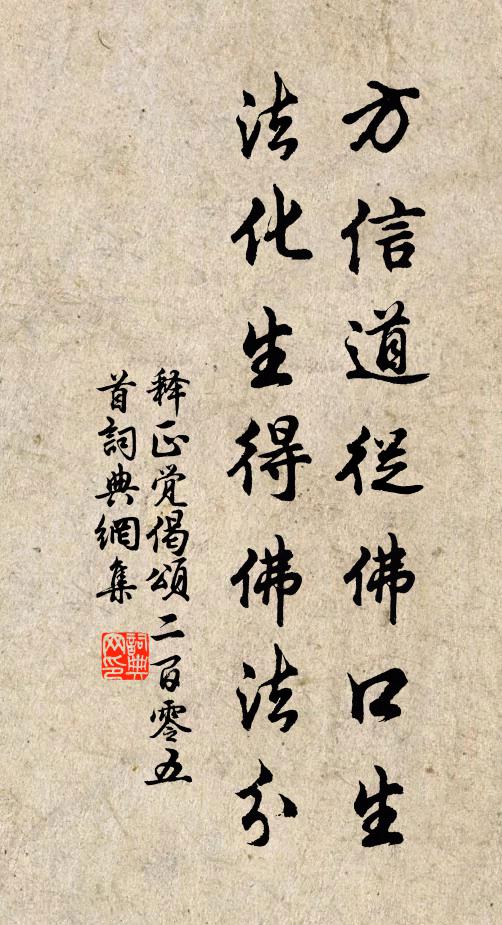 方信道從佛口生
法化生得佛法分
释正覺偈頌二百零五
首詞典網集
詞典
网印